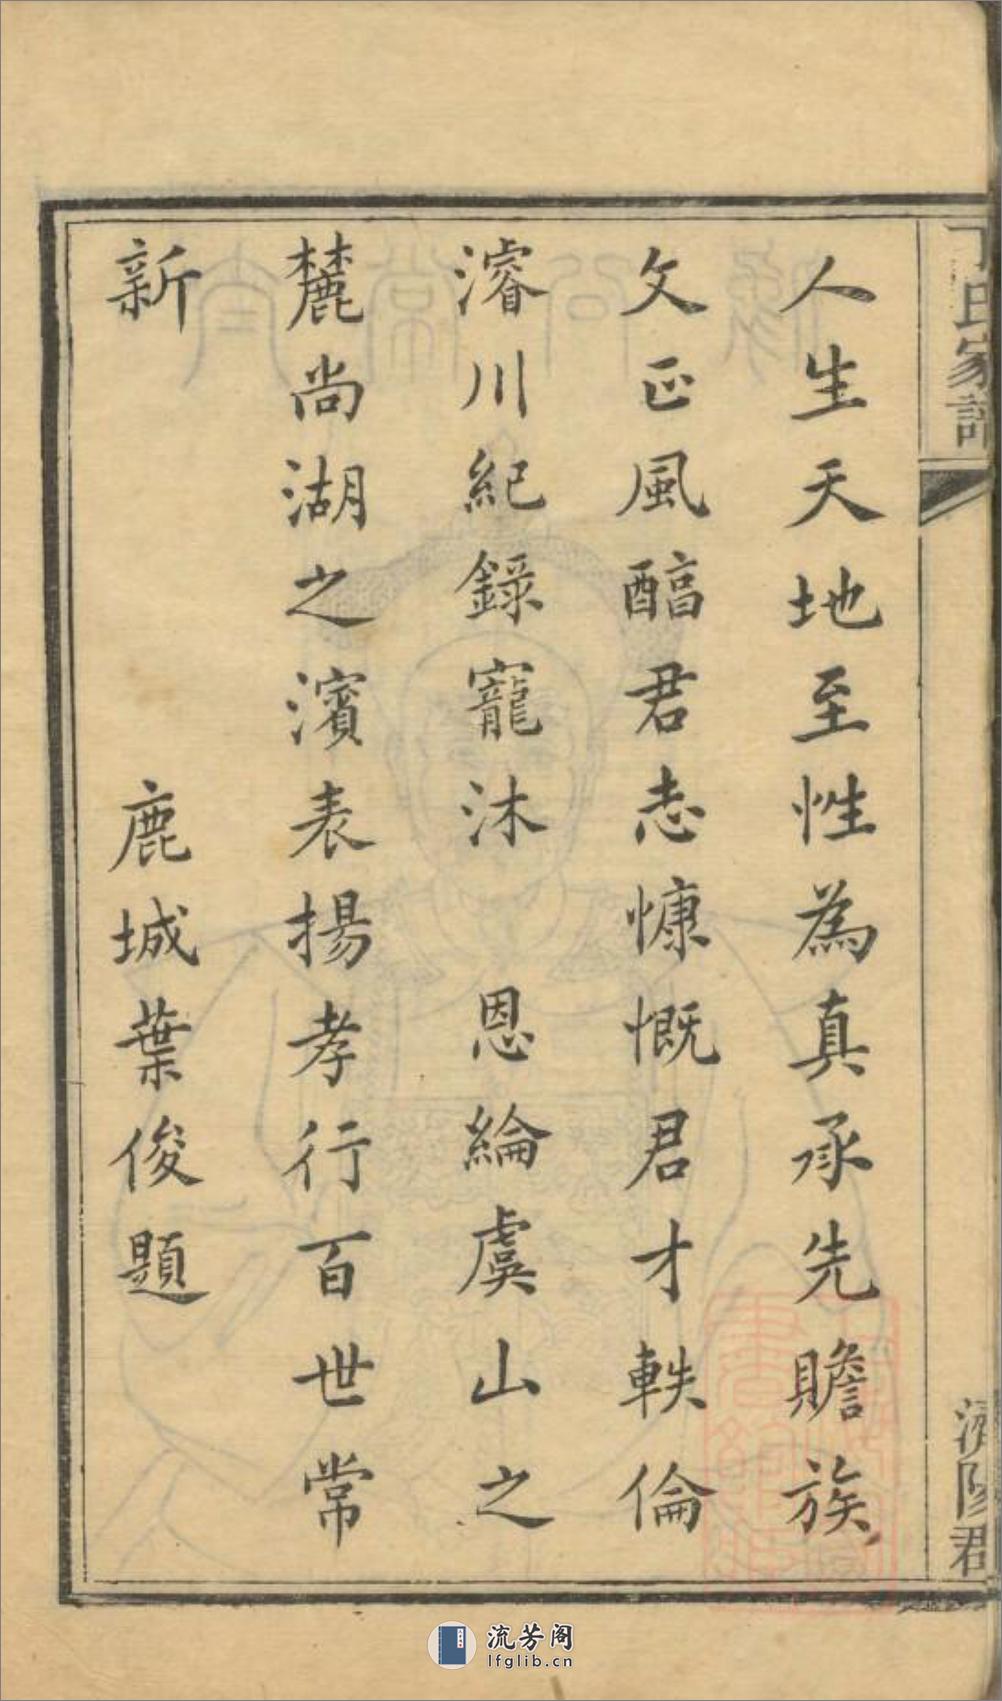 人生天地至性為真承先贍族
文正風醕君志慷慨君才軼倫
濬川紀錄寵沐　恩綸虞山之
麓尚湖之濱表揚孝行百世常
新　　　　鹿城葉俊題
丁氏家譜
濟陽君
流芳阁
lfglib.cn